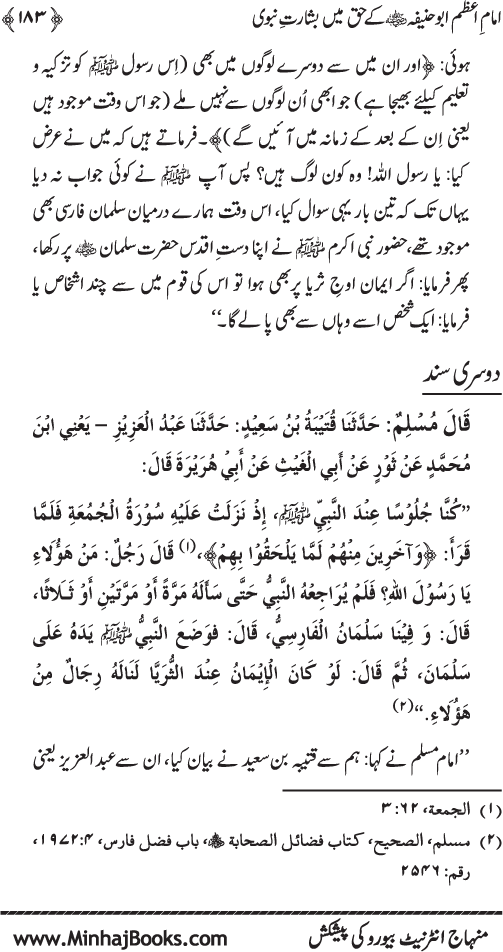 امامِ اعظم ابو حنیفہ ؓ کے حق میں بشارتِ نبوی ﴿۱۸۳﴾
ہوئی: ﴿اور ان میں سے دوسرے لوگوں میں بھی (اِس رسول ﷺ کو تزکیہ و
تعلیم کیلئے بھیجا ہے) جو ابھی اُن لوگوں سے نہیں ملے (جو اس وقت موجود ہیں
یعنی اِن کے بعد کے زمانہ میں آئیں گے)﴾۔ فرماتے ہیں کہ میں نے عرض
کیا: یا رسول اللہ! وہ کون لوگ ہیں؟ پس آپ ﷺ نے کوئی جواب نہ دیا
یہاں تک کہ تین بار یہی سوال کیا، اس وقت ہمارے درمیان سلمان فارسی بھی
موجود تھے، حضور نبی اکرم ﷺ نے اپنا دستِ اقدس حضرت سلمان ؓ پر رکھا،
پھر فرمایا: اگر ایمان اوجِ ثریا پر بھی ہوا تو اس کی قوم میں سے چند اشخاص یا
فرمایا: ایک شخص اسے وہاں سے بھی پا لے گا۔‘‘
دوسری سند
قَالَ مُسْلِمٌ: حَدَّثَنَا قُتَيْبَةُ بْنُ سَعِيْدٍ: حَدَّثَنَا عَبْدُ الْعَزِيْزِ – يَعْنِي ابْنَ
مُحَمَّدٍ عَنْ ثَوْرٍ عَنْ أَبِي الْغَيْثِ عَنْ أَبِيْ هُرَيْرَةَ قَالَ:
’’كُنَّا جُلُوْسًا عِنْدَ النَّبِيِّ ﷺ، إِذْ نَزَلَتْ عَلَيْهِ سُوْرَةُ الْجُمُعَةِ فَلَمَّا
قَرَأَ: ﴿وَآخَرِيْنَ مِنْهُمْ لَمَّا يَلْحَقُوْا بِهِمْ﴾،(۱) قَالَ رَجُلٌ: مَنْ هَؤُلَاءِ
يَا رَسُوْلَ اللهِ؟ فَلَمْ يُرَاجِعْهُ النَّبِيُّ حَتَّى سَأَلَهُ مَرَّةً أَوْ مَرَّتَيْنِ أَوْ ثَـلَاثًا،
قَالَ: وَ فِيْنَا سَلْمَانُ الْفَارِسِيُّ، قَالَ: فَوَضَعَ النَّبِيُّ ﷺ يَدَهُ عَلَى
سَلْمَانَ، ثُمَّ قَالَ: لَوْ كَانَ الْإِيْمَانُ عِنْدَ الثُّرَيَّا لَنَالَهُ رِجَالٌ مِنْ
هَؤُلَاءِ.‘‘(۲)
’’امام مسلم نے کہا: ہم سے قتیبہ بن سعید نے بیان کیا، ان سے عبد العزیز یعنی
(۱) الجمعة، ۶۲: ۳
(۲) مسلم، الصحيح، كتاب فضائل الصحابة ؓ، باب فضل فارس، ۴: ۱۹۷۲،
رقم: ۲۵۴۶
www.MinhajBooks.com منہاج انٹرنیٹ بیورو کی پیشکش